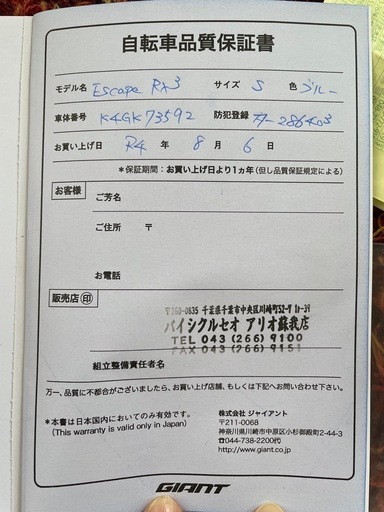 自転車品質保証書
モデル名 Escape RX3 サイズ S 色 ブルー
車体番号 K4GK73592 防犯登録 286403
お買い上げ日 R4 年 8 月 6 日
*保証期間：お買い上げ日より1ヵ年(但し品質保証規定による)
お客様 ご芳名
ご住所 〒
お電話
販売店 印
千葉県千葉市中央区川崎町52-7
バイシクルセオ アリオ蘇我店
TEL 043 (266) 9100
FAX 043 (266) 9151
組立整備責任者名
万一、品質に不都合がございましたら、お買い上げ店舗、もしくは下記へお問い合わせ下さい。
*本書は日本国内においてのみ有効です。
(This warranty is valid only in Japan)
株式会社 ジャイアント
〒211-0068
神奈川県川崎市中原区小杉御殿町2-44-3
☎044-738-2200代
http://www.giant.co.jp
GIANT